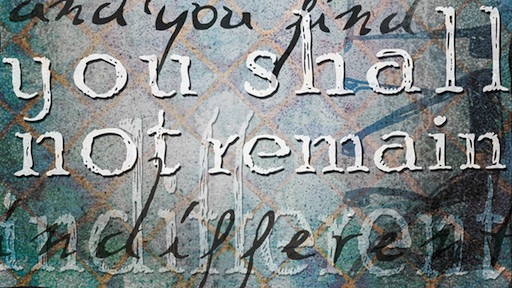 and you find
you shall
not remain
indifferent
indifferent